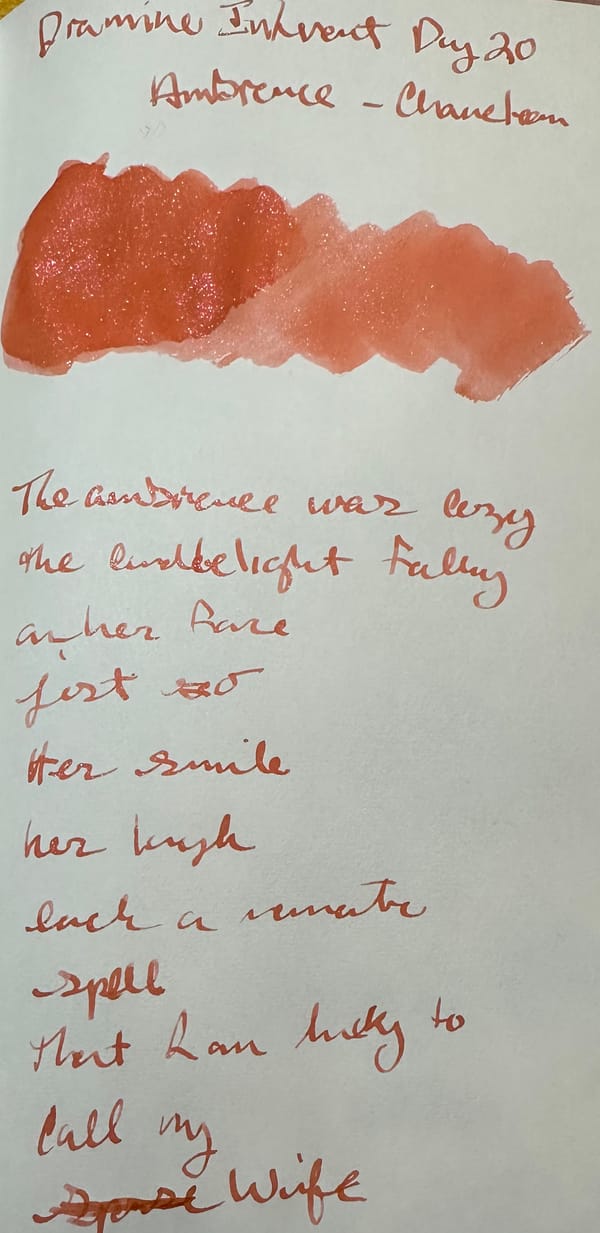 Diamine Inkvent Day 20
Ambience - Chameleon
The ambience was cozy
the candlelight falling
on her face
just so
Her smile
her laugh
each a romantic
spell
That I am lucky to
call my
spouse Wife